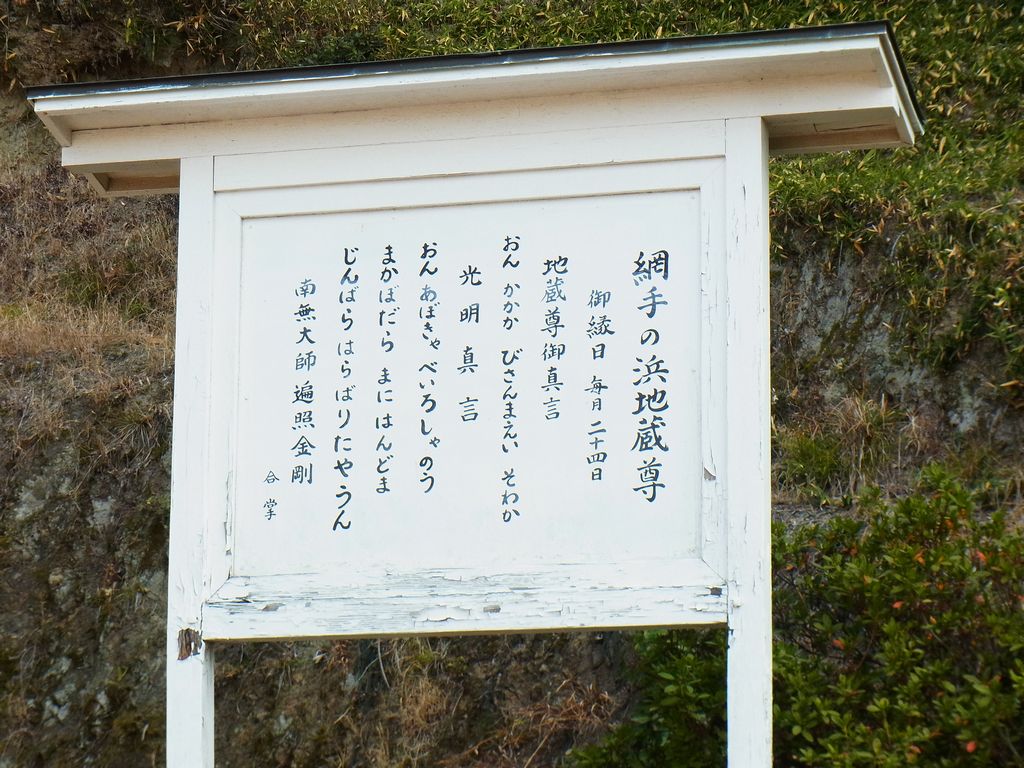 網手の浜地蔵尊
御縁日 毎月二十四日
地蔵尊御真言
おん かかか びさんまえい そわか
光明真言
おん あぼきゃ べいろしゃのう
まかぼだら まにはんどま
じんばら はらばりたやうん
南無大師遍照金剛
合掌